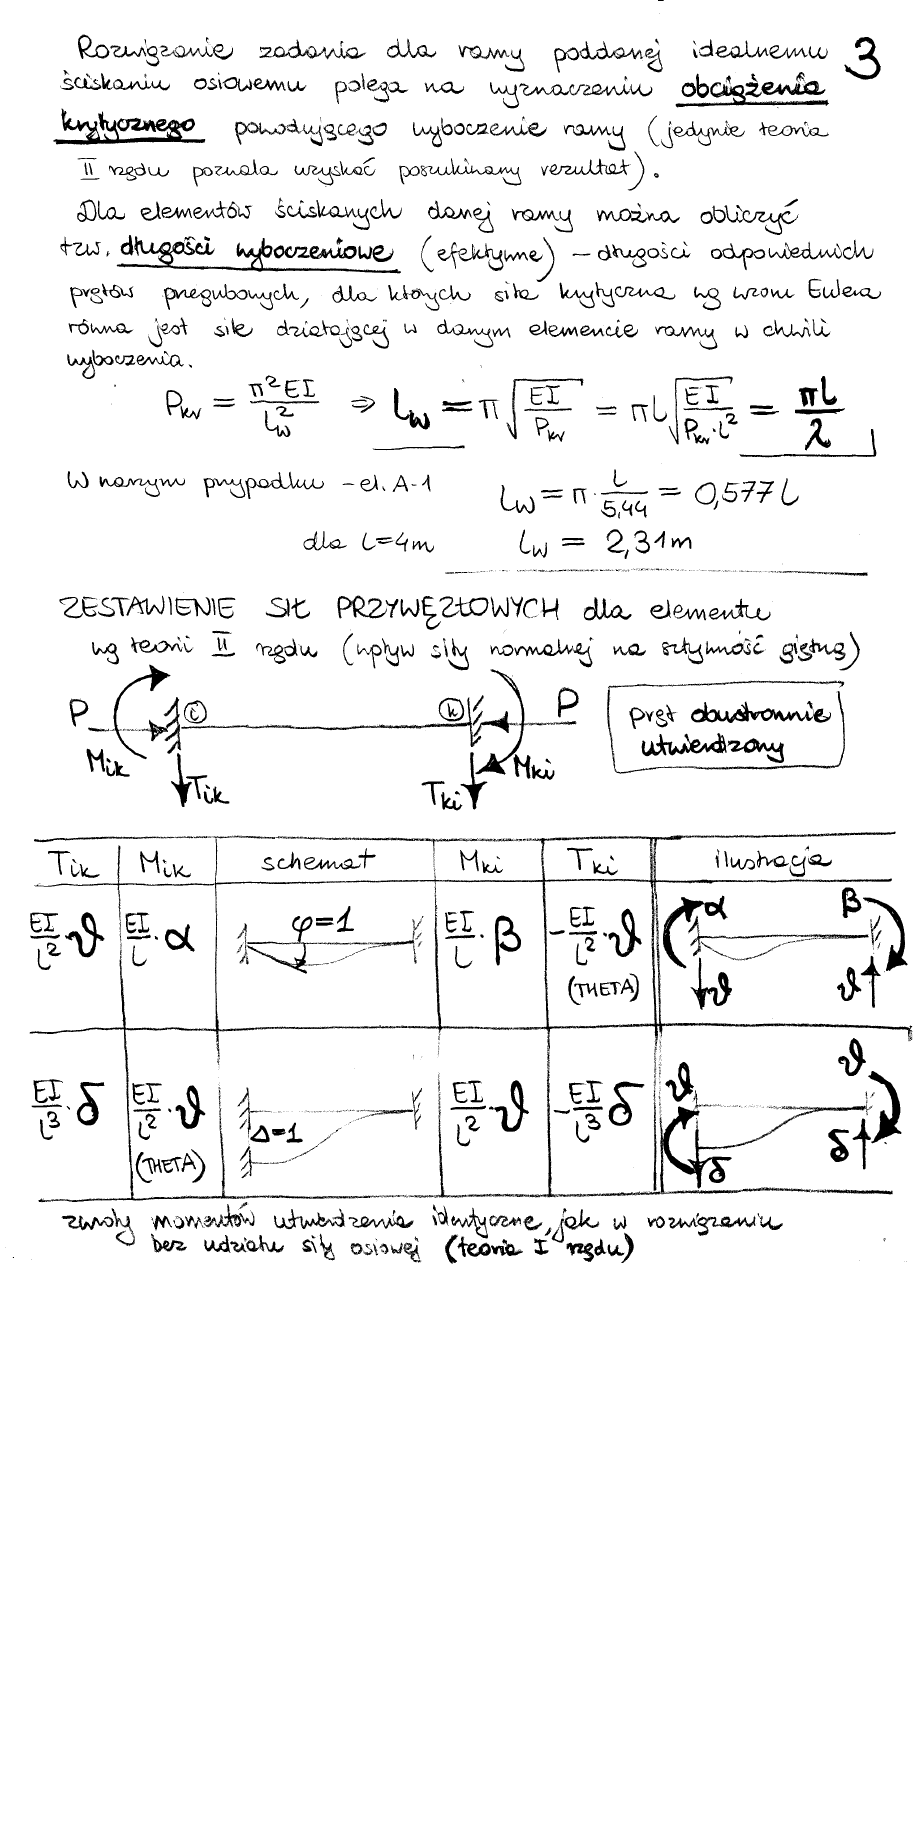 Rozwiązanie zadania dla ramy poddanej idealnemu 3
ściskaniu osiowemu polega na wyznaczeniu obciążenia
krytycznego powodującego wyboczenie ramy (jedynie teoria
II rzędu pozwala uzyskać poszukiwany rezultat).
Dla elementów ściskanych danej ramy można obliczyć
tzw. długości wyboczeniowe (efektywne) – długości odpowiednich
prętów przegubowych, dla których siła krytyczna wg wzoru Eulera
równa jest sile działającej w danym elemencie ramy w chwili
wyboczenia.
P_kr = π²EI / l_w² ⇒ l_w = π√(EI / P_kr) = πl√(EI / (P_kr·l²)) = πl / λ
W naszym przypadku – el. A-1 l_w = π · l / 5,44 = 0,577 l
dla l=4m l_w = 2,31m
ZESTAWIENIE SIŁ PRZYWĘZŁOWYCH dla elementu
wg teorii II rzędu (wpływ siły normalnej na sztywność giętną)
P i k P
M_ik M_ki
T_ik T_ki
pręt obustronnie
utwierdzony
T_ik M_ik schemat M_ki T_ki ilustracja
EI/l²·ϑ EI/l·α φ=1 EI/l·β -EI/l²·ϑ α β
(THETA) ϑ ϑ
EI/l³·δ EI/l²·ϑ Δ=1 EI/l²·ϑ -EI/l³ δ ϑ ϑ
(THETA) δ δ
zwroty momentów utwierdzenia identyczne, jak w rozwiązaniu
bez udziału siły osiowej (teoria I rzędu)